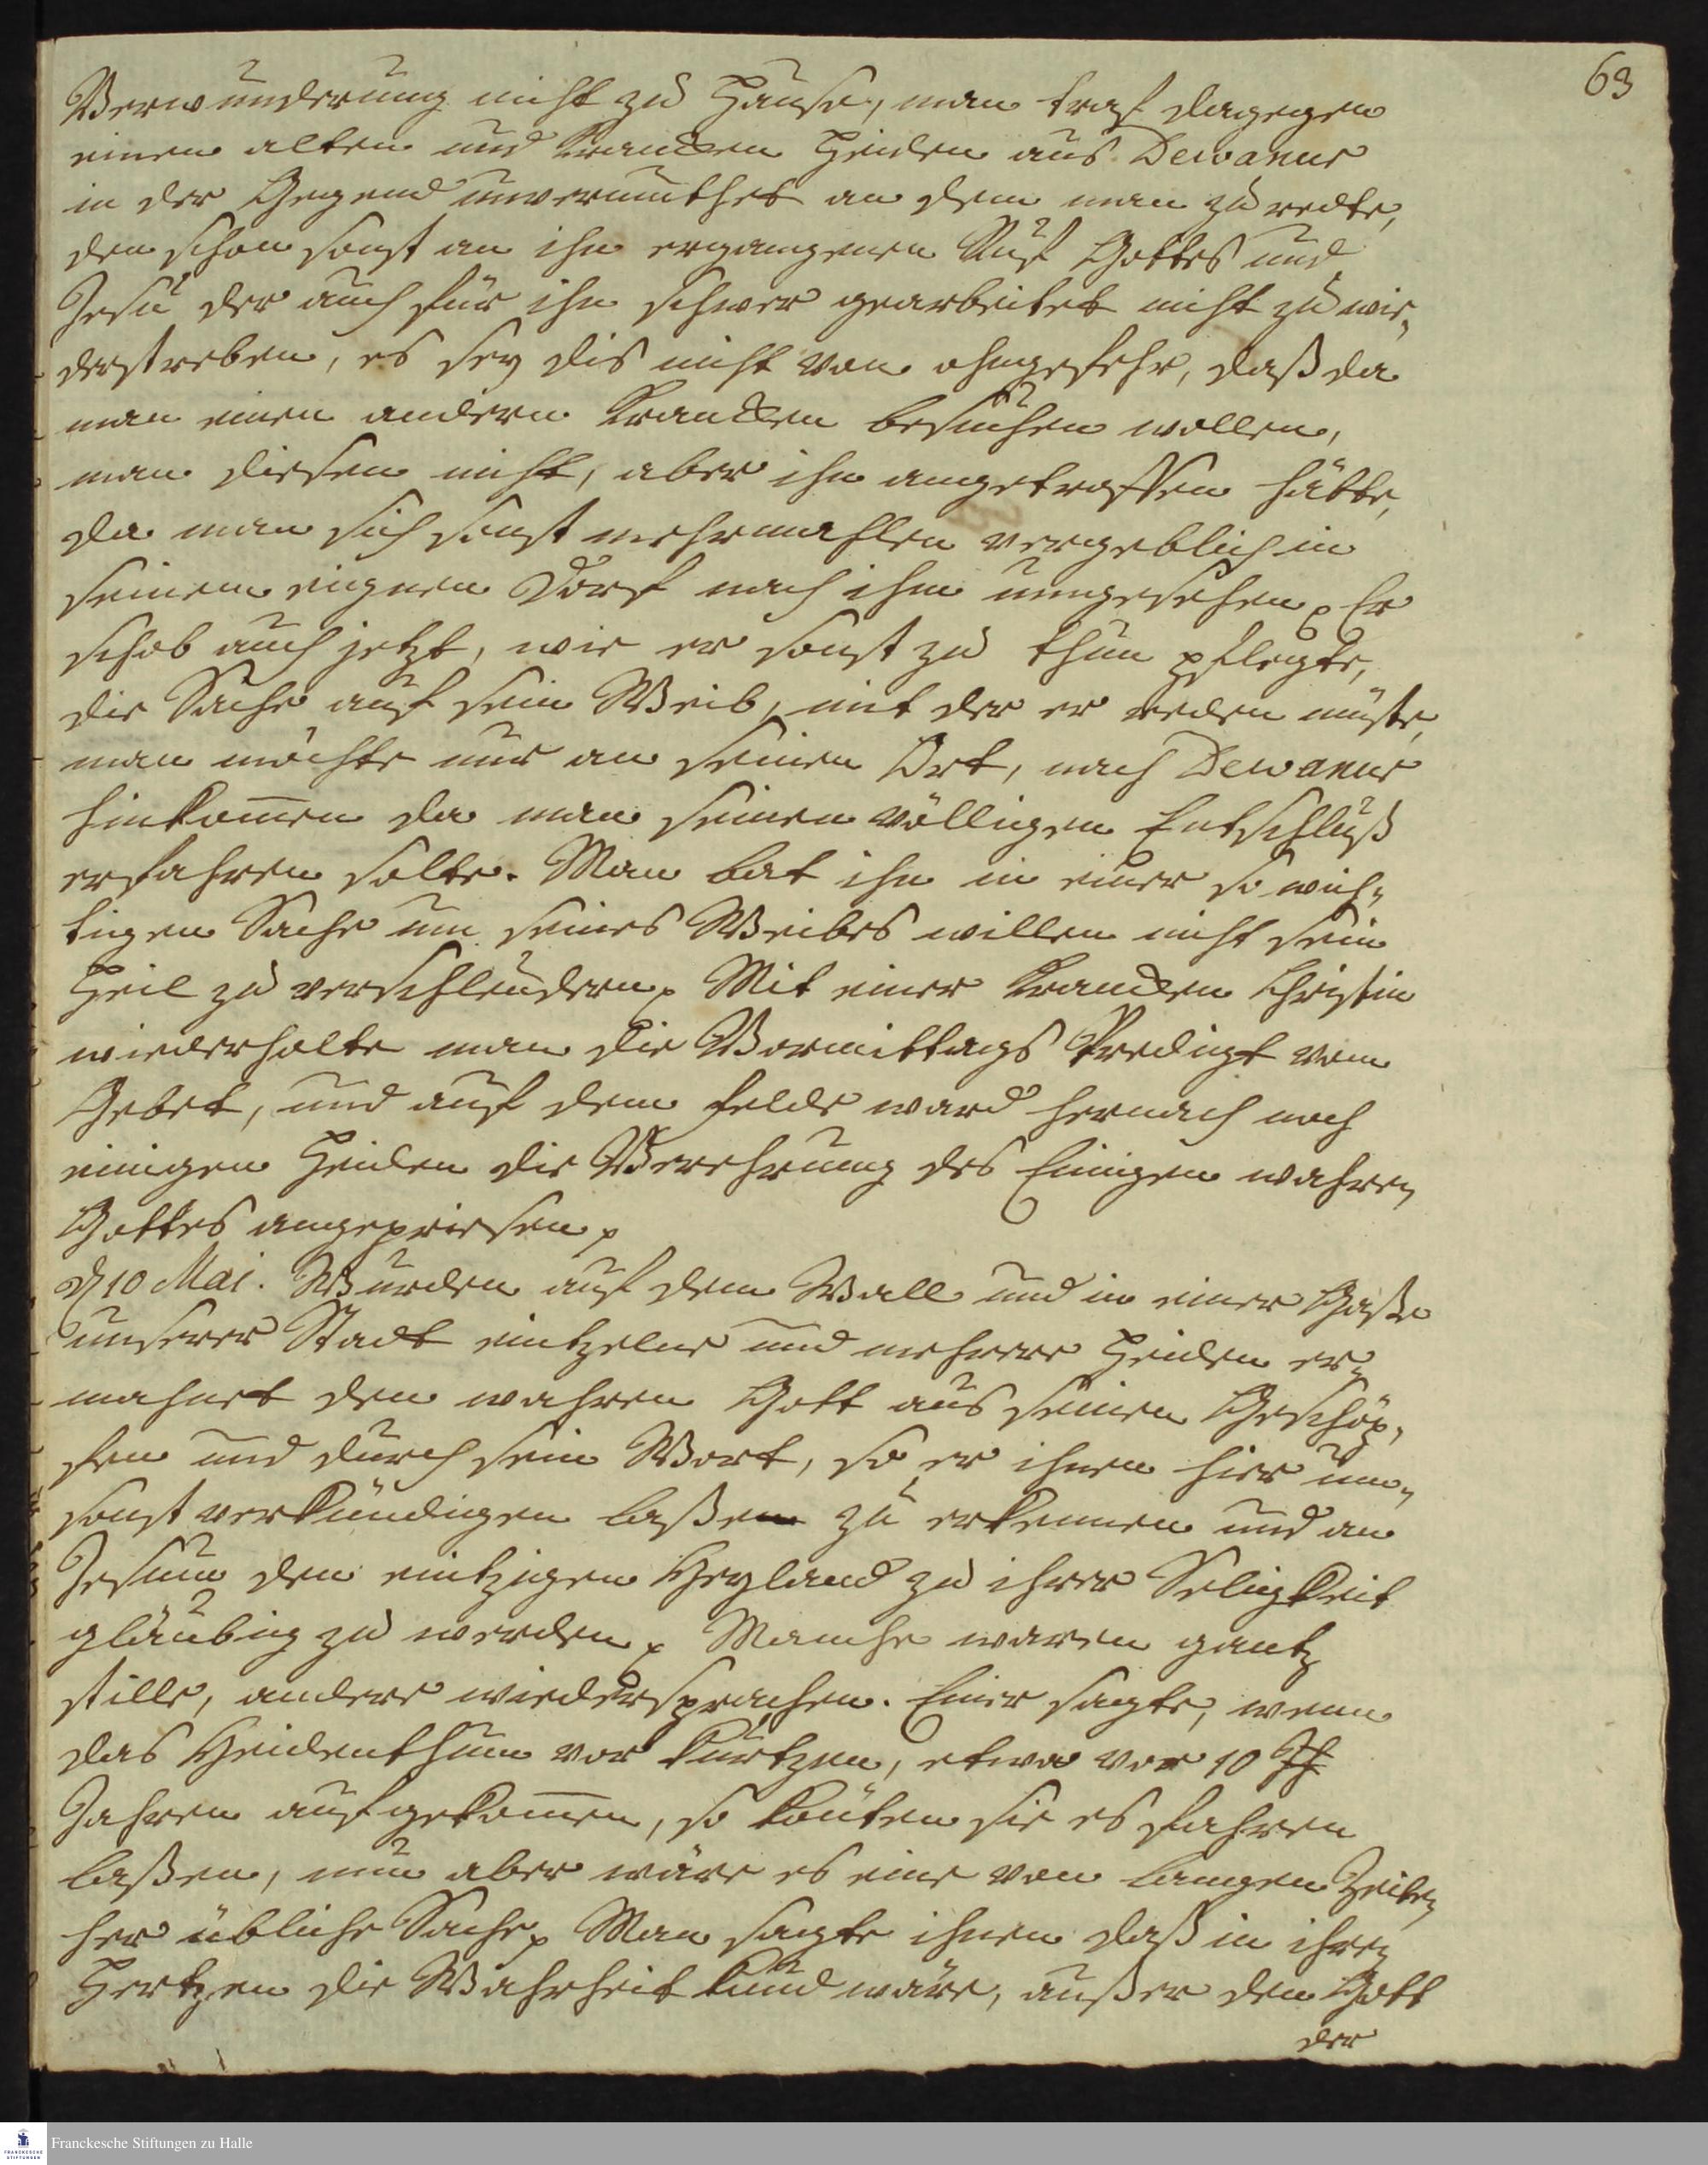 63
Verwunderung nicht zu Hause, man traf dagegen
einen alten und krancken Heiden aus Dewanur
in der Gegend unvermuthet an dem man zu redte,
den schon sonst an ihn ergangenen Ruf Gottes und
Jesu der auch für ihn schwer gearbeitet nicht zu wie„
derstreben, es sey dis nicht von ohngefehr, daß da
man einen andern Krancken besuchen wollen,
man diesen nicht, aber ihn angetroffen hätte,
da man sich sonst mehrmahlen vergeblich in
seinem eignen Dorf nach ihm umgesehen. Er
schob auch jetzt, wie er sonst zu thun pflegte,
die Sache auf sein Weib, mit der er reden müste,
man möchte nur an seinen Ort, nach Dewanur
hinkom̅en da man seinen völligen Entschluß
erfahren solte. Man bat ihn in einer so wich„
tigen Sache um seines Weibes willen nicht sein
Heil zu verschleudern. Mit einer krancken Christin
wiederholte man die Vormittags Predigt vom
Gebet, und auf dem Felde ward hernach noch
einigen Heiden die Verehrung des Einigen wahren
Gottes angepriesen.
d 10 Mai. Wurden auf dem Wall und in einer Gaße
unserer Stadt eintzelne und mehrere Heiden er„
mahnet den wahren Gott aus seinen Geschöp„
fen und durch sein Wort, so er ihnen hier um„
sonst verkündigen laßen zu erkennen und an
Jesum den eintzigen Heyland zu ihrer Seligkeit
gläubig zu werden. Manche waren gantz
stille, andere wiedersprachen. Einer sagte, wenn
das Heidenthum vor kurtzen, etwa vor 10 Jh
Jahren aufgekom̅en, so könten sie es fahren
laßen, nun aber wäre es eine von langen Zeiten
her übliche Sache. Man sagte ihnen daß in ihren
Hertzen die Wahrheit kund wäre, außer dem Gott
der
Franckesche Stiftungen zu Halle
FRANCKESCHE STIFTUNGEN